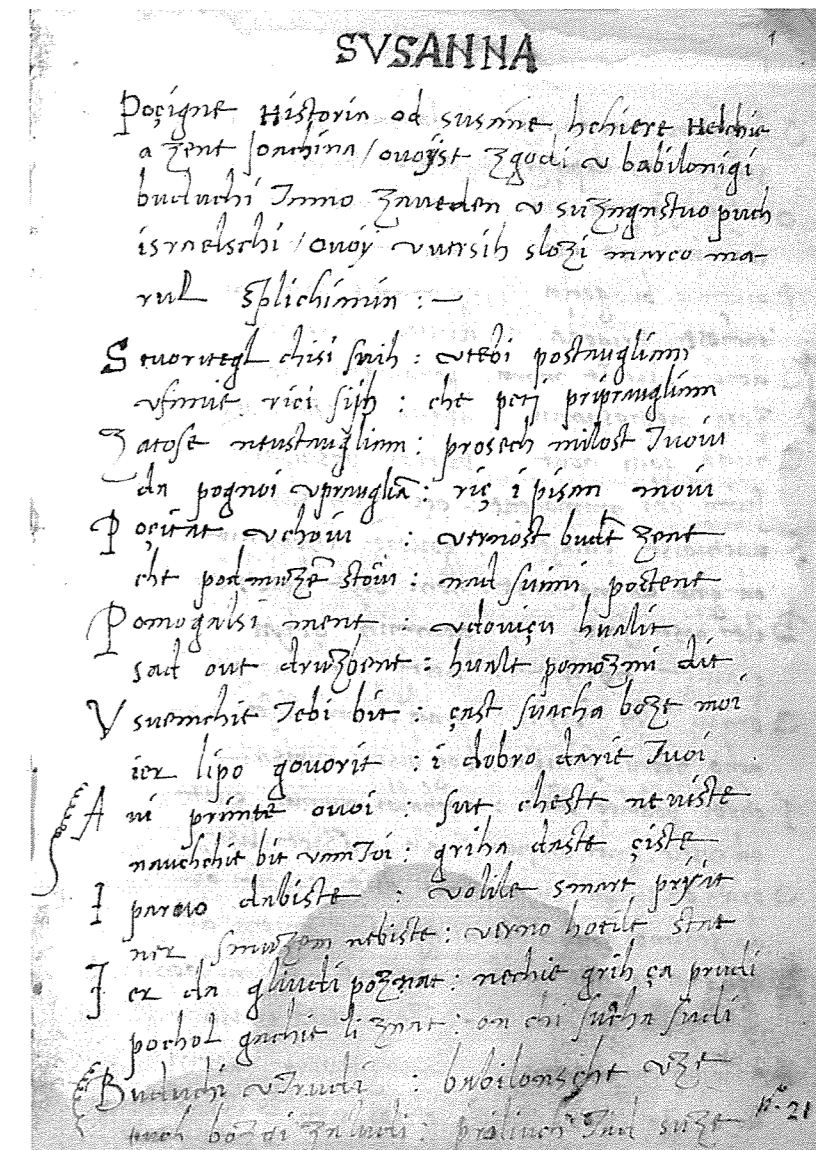 SVSANNA
1
Poçigne Historia od susane hchiere Helchie
a xene Joachina / ovoyst zgodi v babilonigi
buduchi Inno zaveden v suzagnstvo puch
israelschi / ovoy v versih slozi marco ma-
rul Splichianin : —
Stvoritegl chisi svih : v tebi postavgliam
vfanie rici sih : che perj pripravgliam
Zatose neustavgliam : prosech milost Tvoiu
da pognoi vpravgliā : riç i pisan moiu
Poçitat vchoiu : vernost budē xene
che pod muzē stoiu : nad suimi poctene
Pomogalsi mene : vdoviçu hvalit
sad ove druzbene : hvale pomozmi dit
V suemchie Tebi bit : çast svacha boze moi
ier lipo govorit : i dobro darie Tvoi
A vi primite ovoi : sve cheste neviste
nauchchie bit vam Toi : griha daste çiste
I paravo dabiste : volile smart priyat
ner s muzom nebiste : verno hotile stat
Jer da gliudi poznat : nechie grih ça prudi
pochol gachie li znat : on chi svacha sudi
Buduchi v Trudi : babilonsche vze
puch bozgi za ludi : prolivch Tad suze
p. 21